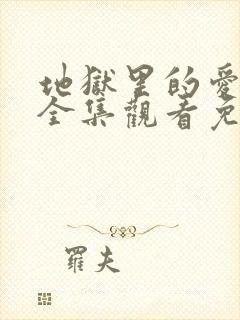 地獄里的愛
全集觀看免
羅夫